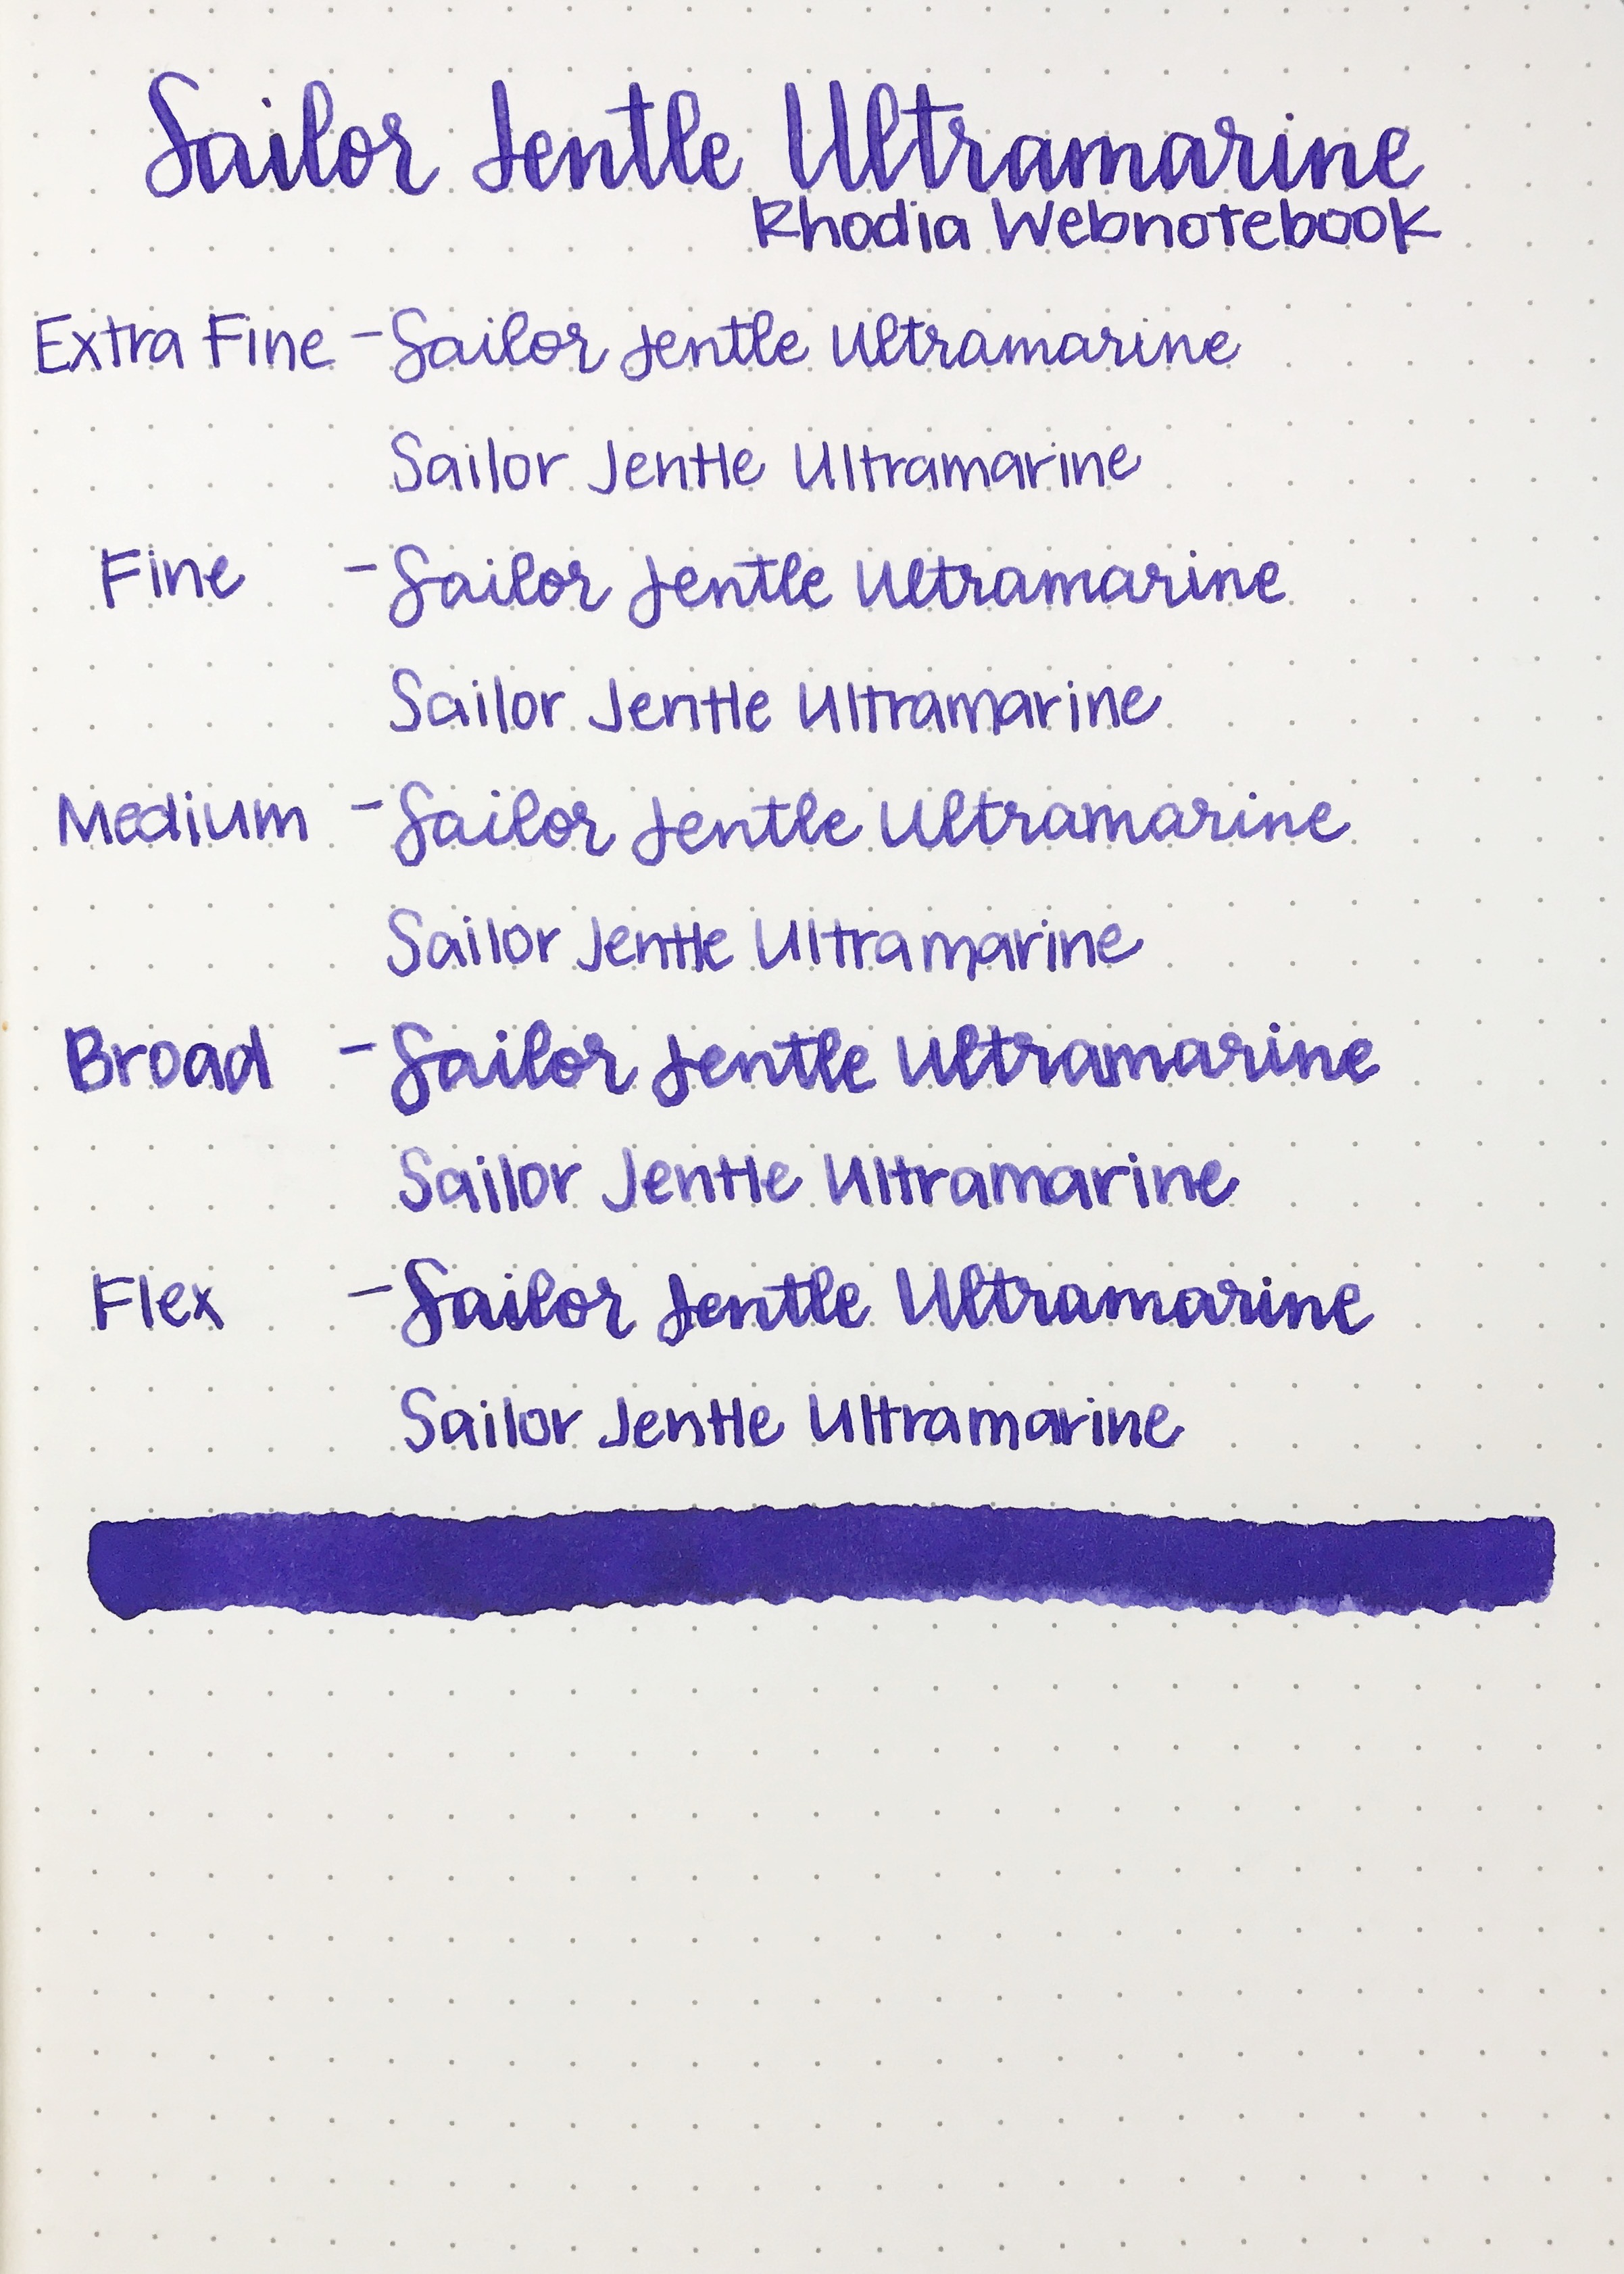 Sailor Jentle Ultramarine
Rhodia Webnotebook
Extra Fine - Sailor Jentle Ultramarine
Sailor Jentle Ultramarine
Fine - Sailor Jentle Ultramarine
Sailor Jentle Ultramarine
Medium - Sailor Jentle Ultramarine
Sailor Jentle Ultramarine
Broad - Sailor Jentle Ultramarine
Sailor Jentle Ultramarine
Flex - Sailor Jentle Ultramarine
Sailor Jentle Ultramarine